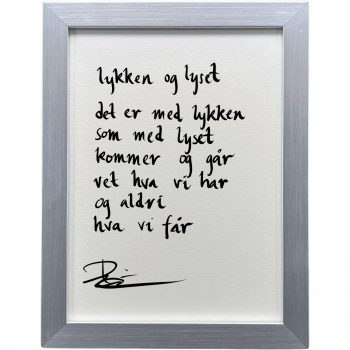 lykken og lyset
det er med lykken
som med lyset
kommer og går
vet hva vi har
og aldri
hva vi får